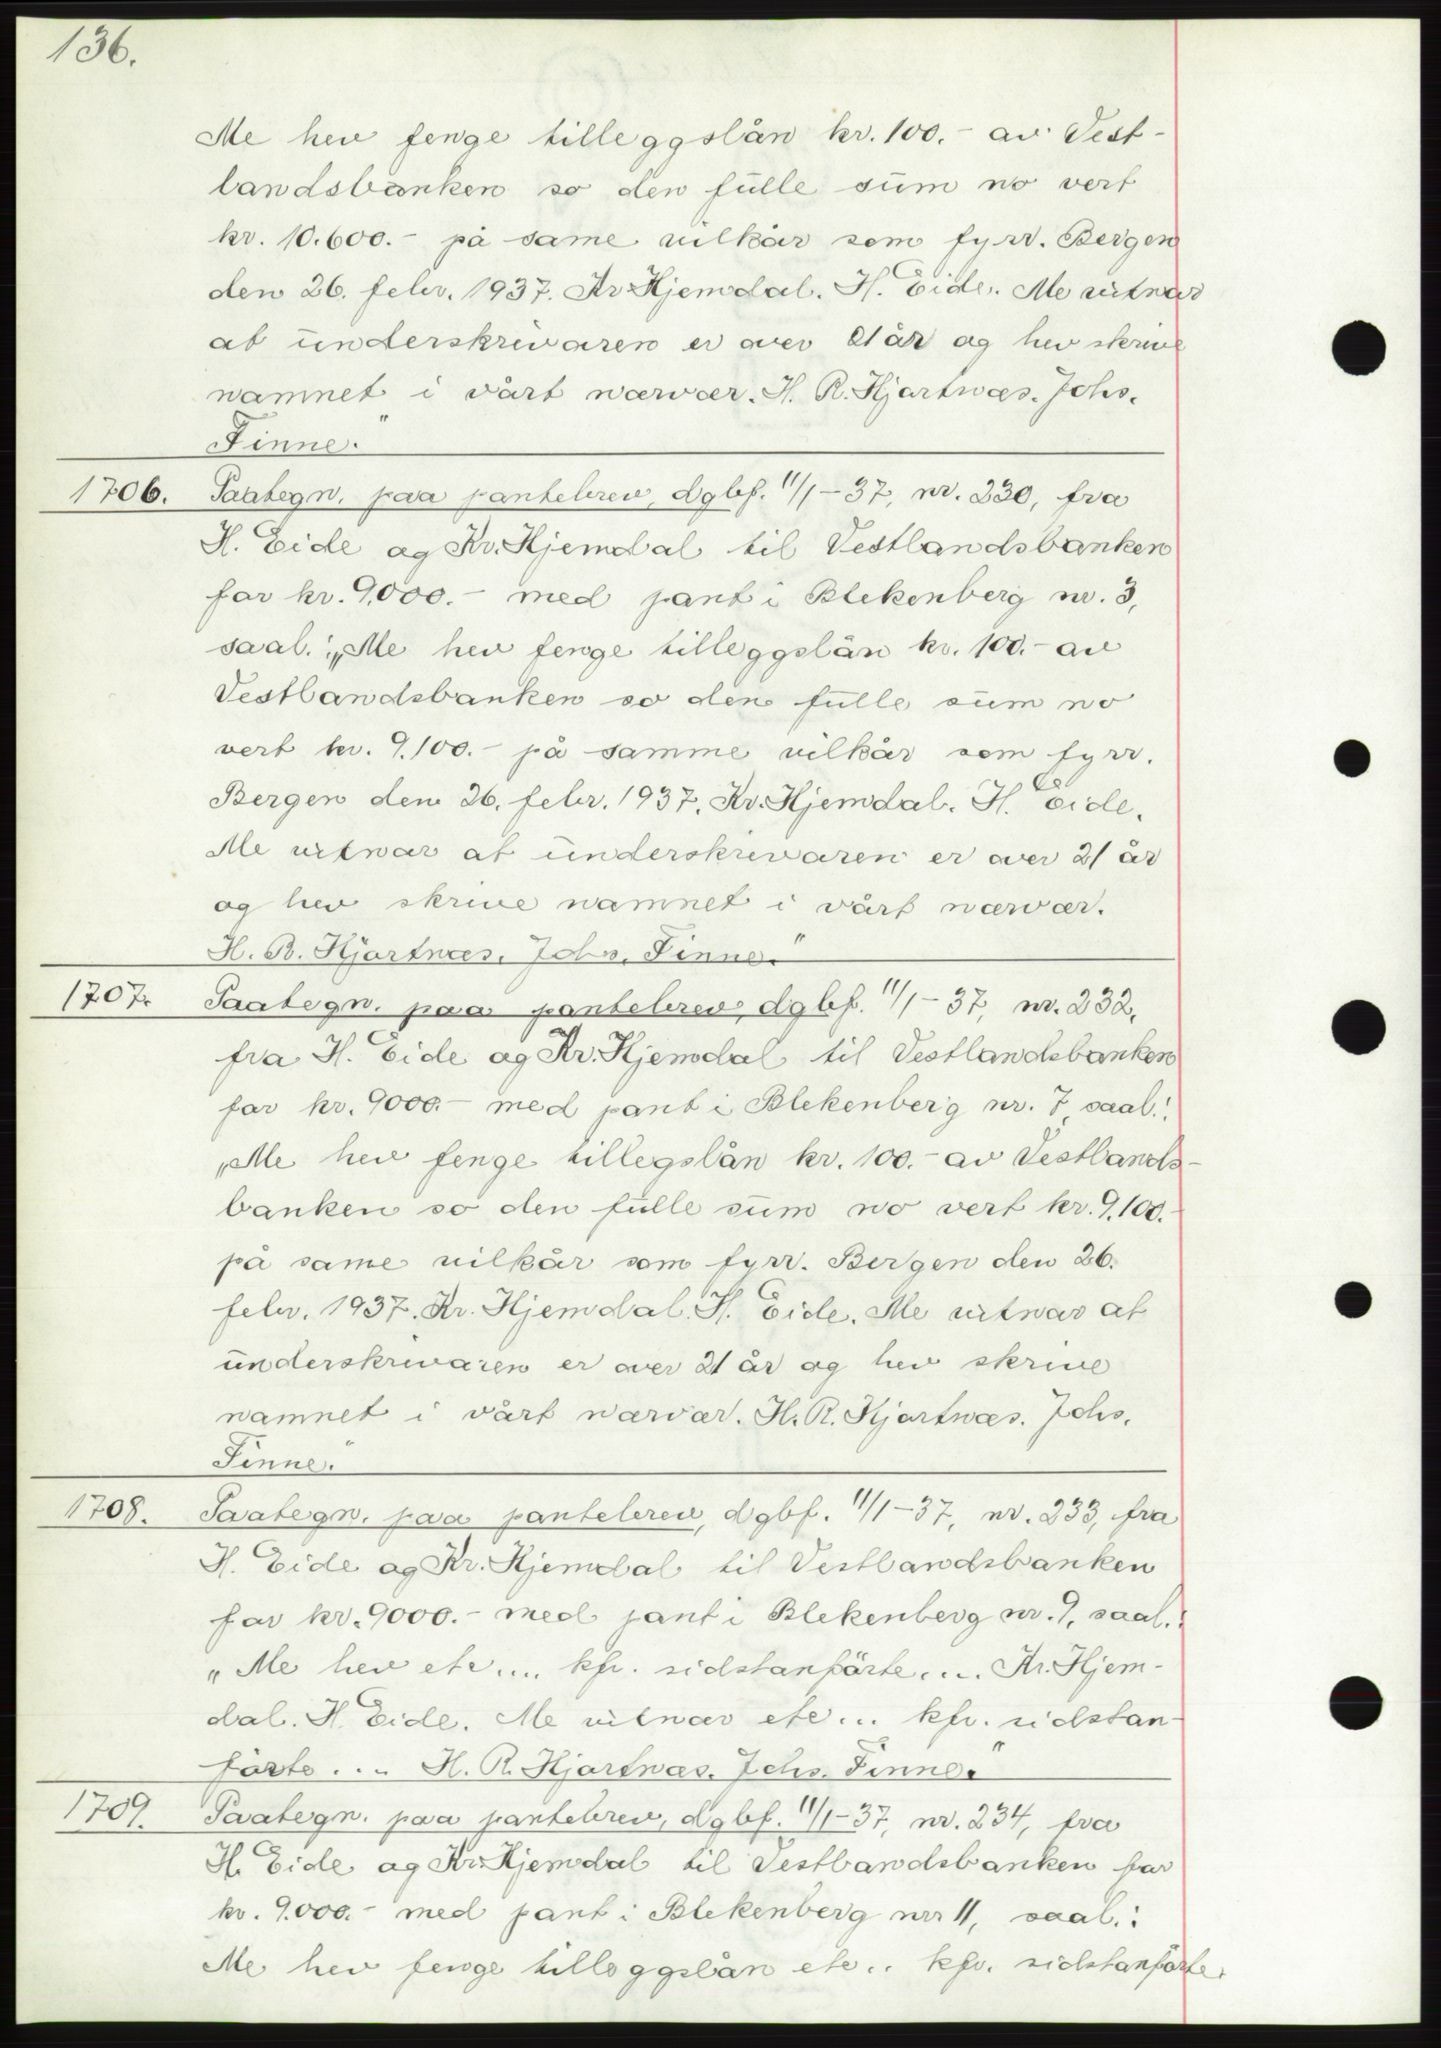 136.
Me hev fenge tilleggslån kr. 100.- av Vest-
landsbanken so den fulle sum no vert
kr. 10.600.- på same vilkår som fyrr. Bergen
den 26. febr. 1937. Kr Hjemdal. H. Eide. Me vitnar
at underskrivaren er over 21 år og hev skrive
namnet i vårt nærvær. H. R. Hjartnæs. Johs.
Finne."
1706. Paategn. paa pantebrev, dgbf. 11/1-37, nr. 230, fra
H. Eide og Kr. Hjemdal til Vestlandsbanken
for kr. 9.000.- med pant i Blekenberg nr. 3,
saal.: „Me hev fenge tilleggslån kr. 100.- av
Vestlandsbanken so den fulle sum no
vert kr. 9.100.- på samme vilkår som fyrr.
Bergen den 26. febr. 1937. Kr. Hjemdal. H. Eide.
Me vitnar at underskrivaren er over 21 år
og hev skrive namnet i vårt nærvær.
H. R. Hjartnæs. Johs. Finne."
1707. Paategn. paa pantebrev, dgbf. 11/1-37, nr. 232,
fra H. Eide og Kr. Hjemdal til Vestlandsbanken
for kr. 9000.- med pant i Blekenberg nr. 7, saal.:
„Me hev fenge tillegslån kr. 100.- av Vestlands-
banken so den fulle sum no vert kr. 9.100.-
på same vilkår som fyrr. Bergen den 26.
febr. 1937. Kr. Hjemdal. H. Eide. Me vitnar at
underskrivaren er over 21 år og hev skrive
namnet i vårt nærvær. H. R. Hjartnæs. Johs.
Finne."
1708. Paategn. paa pantebrev, dgbf. 11/1-37, nr. 233, fra
H. Eide og Kr. Hjemdal til Vestlandsbanken
for kr. 9000.- med pant i Blekenberg nr. 9, saal.:
„Me hev etc.... kfr. sidstanførte.... Kr. Hjem-
dal. H. Eide. Me vitnar etc... kfr. sidstan-
førte... H. R. Hjartnæs. Johs. Finne."
1709. Paategn. paa pantebrev, dgbf. 11/1-37, nr. 234, fra
H. Eide og Kr. Hjemdal til Vestlandsbanken for
kr. 9.000.- med pant i Blekenberg nr 11, saal.:
Me hev fenge tilleggslån etc.. kfr. sidstanførte.